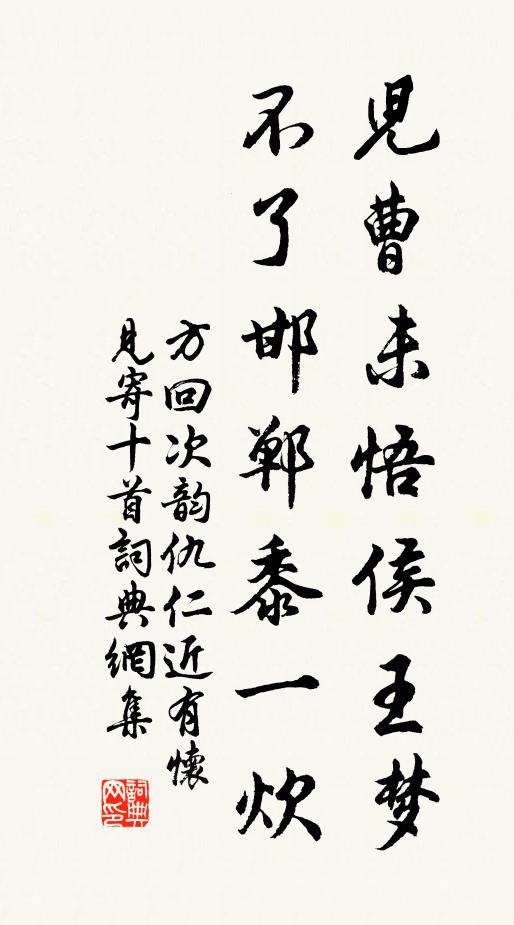 児曹未悟侯王梦
不了邯郸黍一炊
方回次韵仇仁近有懷
見寄十首詞典網集
詞典网印